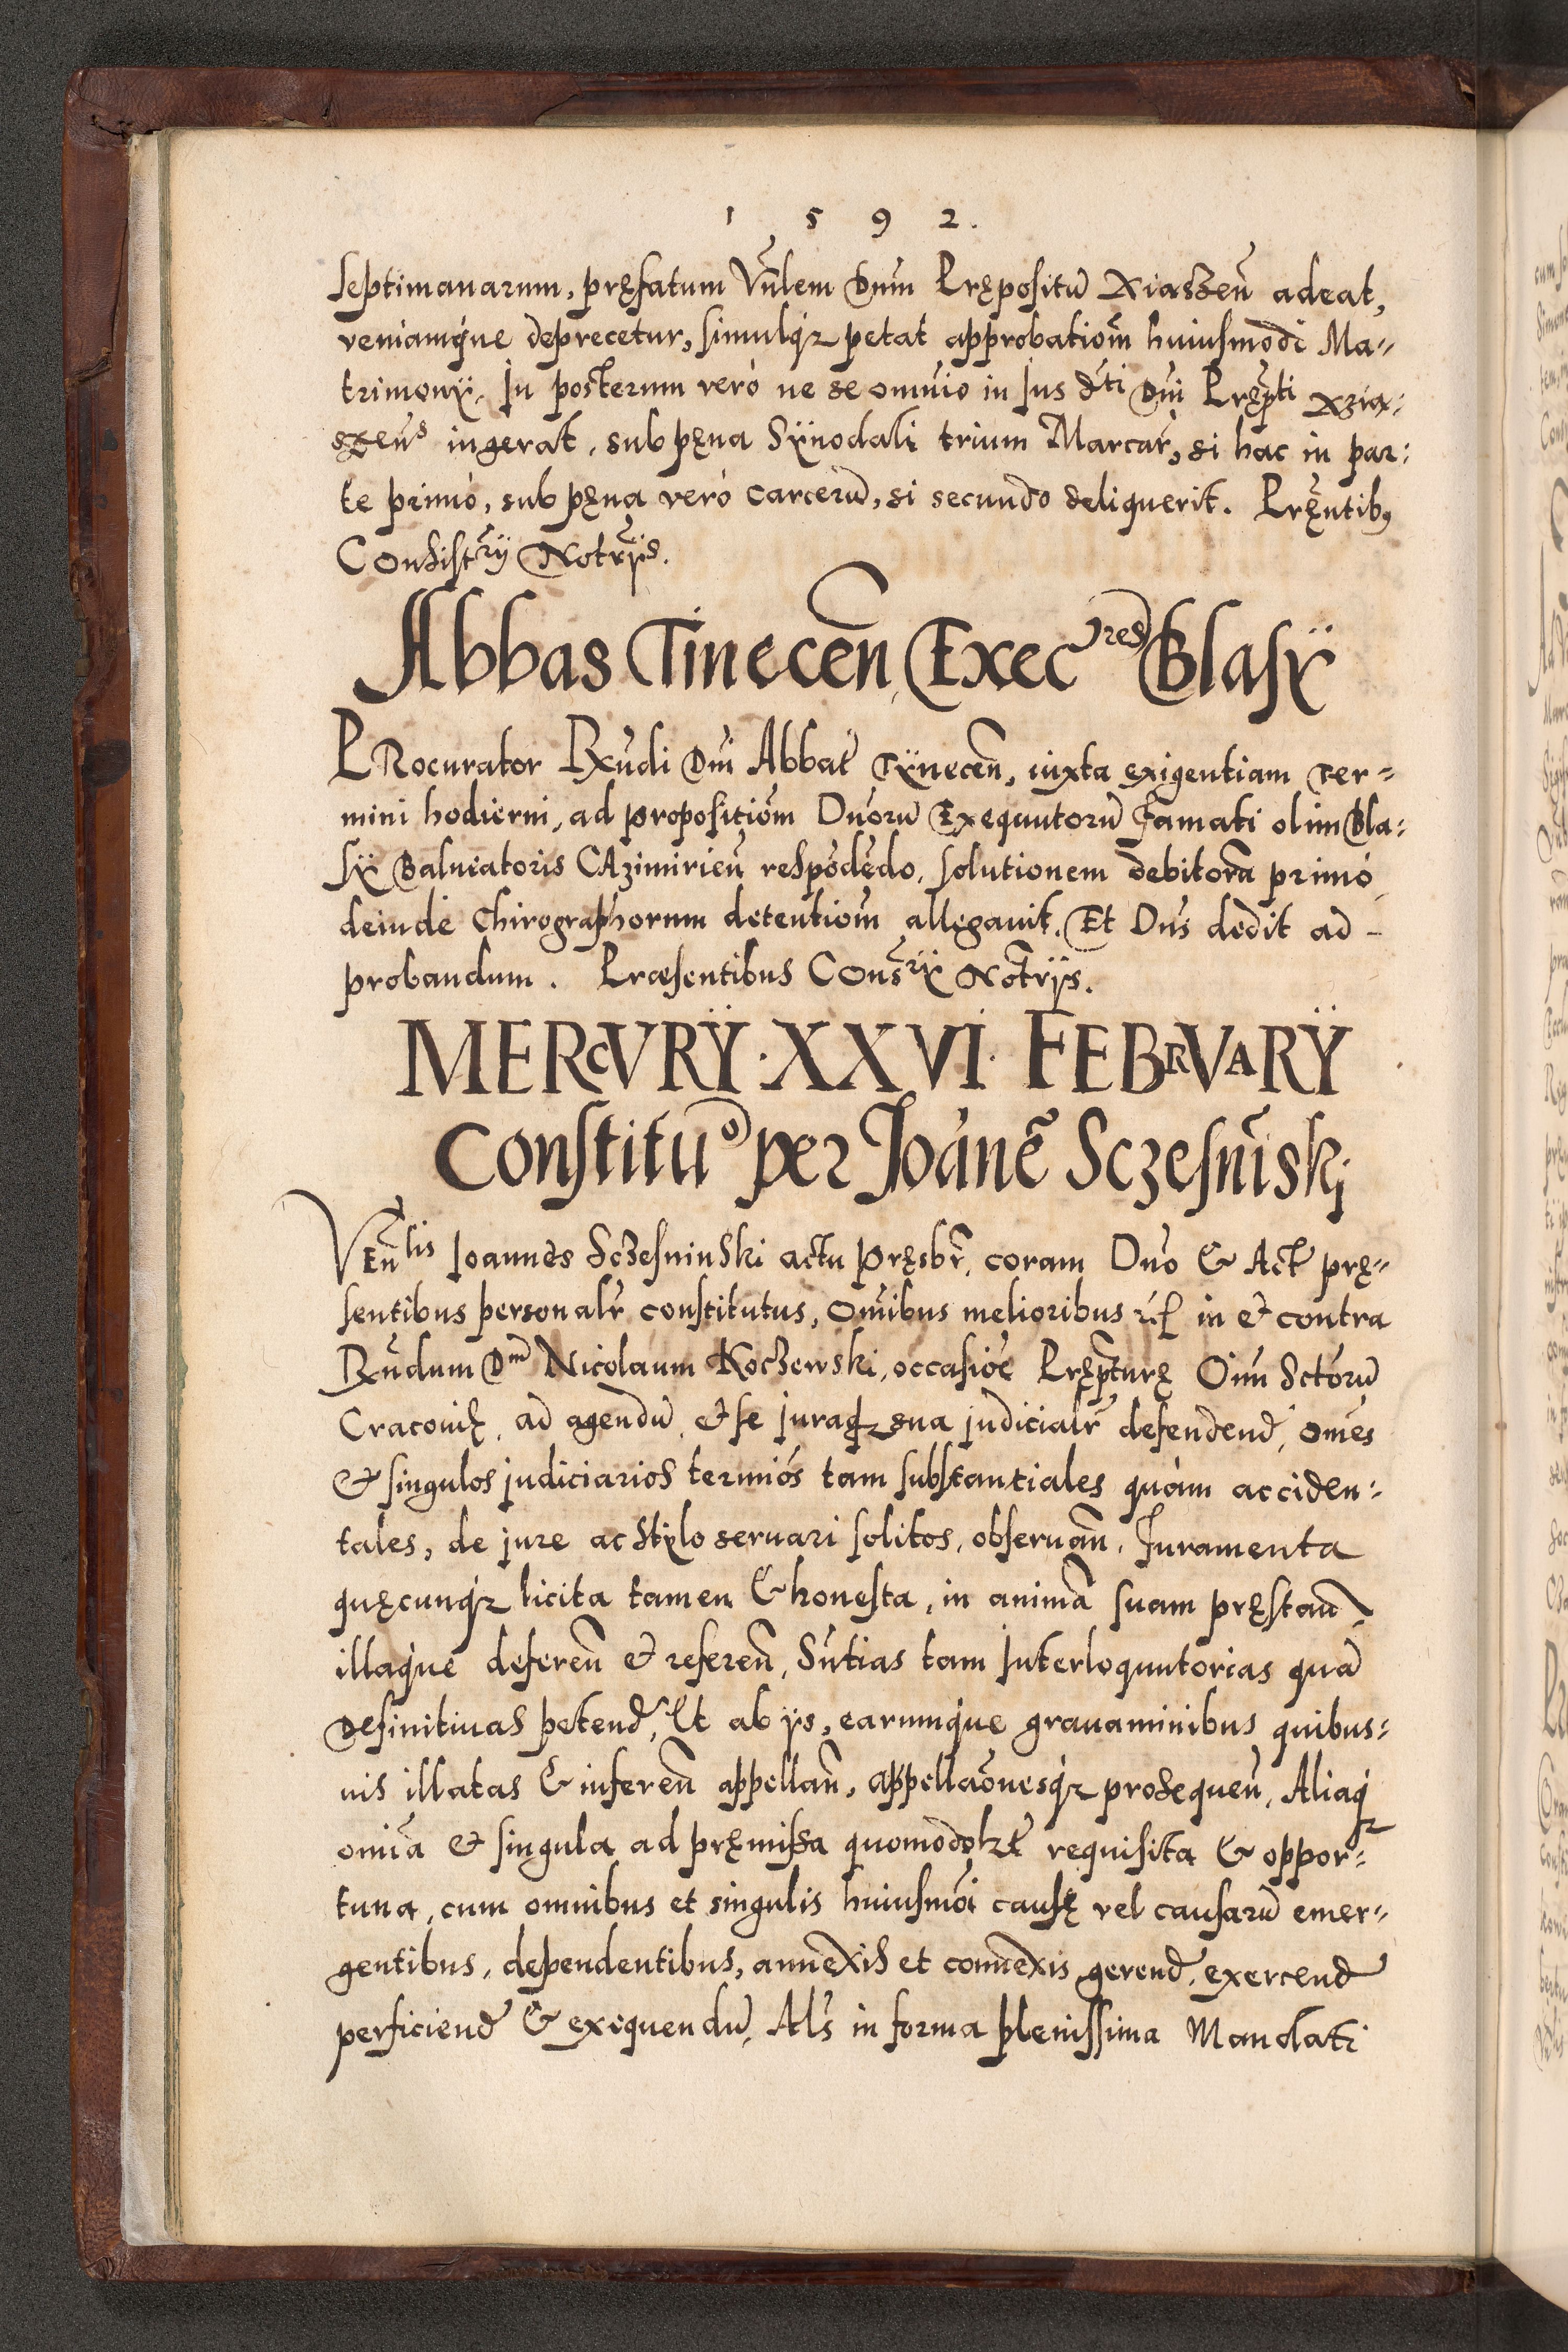 1 5 9 2.
septimanarum, pręfatum Vn̄lem Dnūm Lrępositū Xiaszeñ adeat,
veniamq́ue deprecetur, simulq́ꝫ petat approbatiom̄ huiusmodi Ma-
trimonÿ. In posterum verò ne se omnīo in Jus dc̄ti Dn̄i Pręp̄ti Xzia:
szeñs ingerat, sub pęna Sÿnodali trium Marcar̄, si hac in par:
te primò, sub pęna verò carcerū, si secundo deliquerit. Pręn̄tibꝯ
Consist͂rÿ Not͂rÿs.
Abbas Tinecen̄, Execres Blasÿ
PRocurator Rn̄di Dn̄i Abbat̄ Tÿnecen̄, iuxta exigentiam Ter=
mini hodierni, ad propositiōm Dn̄orū Exequutorū Famati olim Bla:
sÿ Balneatoris CAzimirien̄ respōdēdo, solutionem debitorā primò
deinde Chirographorum detentiōm allegauit. Et Dn̄s dedit ad -
probandum. Præsentibus Cons͂rÿ Not͂rÿs.
MERCVRŸ · XXVI · FEBRVARŸ
Constituo per Joānē Sczesnīskj
VEn̄lis Joannes Sczesninski actu pręsbr̄, coram Dn̄o & Act̄ prę-
sentibus personalr̄ constitutus, Omīibus melioribus rc̄ł in et contra
Rn̄dum Dm̄ Nicolaum Koczewski, occasiōe Pręp̄turę Oīm Sctōrū
Cracouię, ad agendū, et se juraqꝫ sua judicialr̄ defendend̄, omēs
et singulos judiciarios termiōs tam substantiales quàm acciden:
tales, de jure ac stÿlo seruari solitos, obseruan̄, Juramenta
quęcunq́ꝫ licita tamen & honesta, in animā suam pręstan̄,
illaq́ue deferen̄ et referen̄, Sn̄tias tam Interloquutorias quā
Definitiuas petend̄, Et ab ÿs, earumq́ue grauaminibus quibus:
uis illatas & inferen̄ appellan̄, appellaōnesq́ꝫ prosequen̄, Aliaq́ꝫ
omīa et singula ad pręmissa quomodołzt̄ requisita & oppor=
tuna, cum omnibus et singulis huiusmōi causę vel causarū emer-
gentibus, dependentibus, annexis et connexis gerend̄, exercend̄
perficiend̄ & exequendū, Als̄ in forma plenissima Mandati